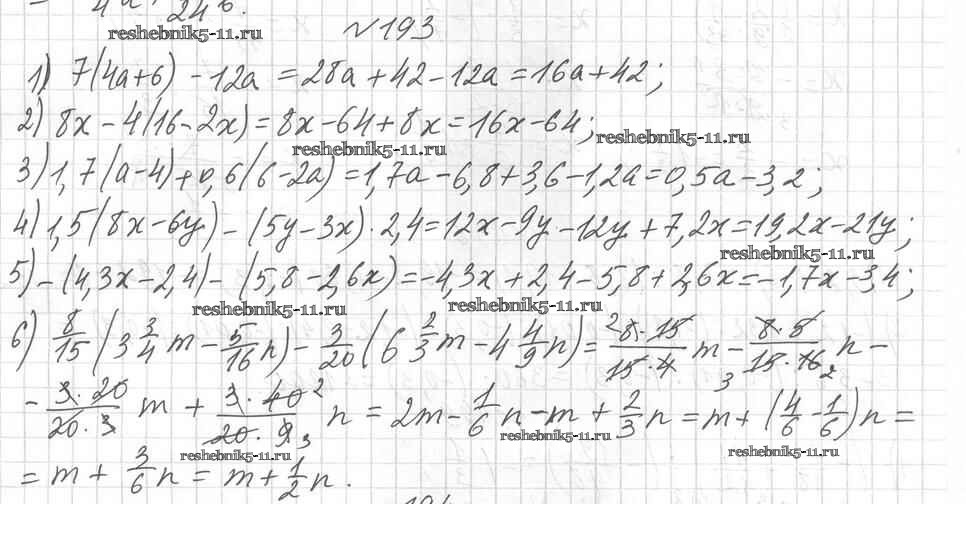 reshebnik5-11.ru
№193
1) 7(4a+6) - 12a = 28a + 42 - 12a = 16a + 42;
2) 8x - 4(16 - 2x) = 8x - 64 + 8x = 16x - 64; reshebnik5-11.ru
reshebnik5-11.ru
3) 1,7(a-4) + 0,6(6-2a) = 1,7a - 6,8 + 3,6 - 1,2a = 0,5a - 3,2;
4) 1,5(8x-6y) - (5y-3x)·2,4 = 12x - 9y - 12y + 7,2x = 19,2x - 21y;
reshebnik5-11.ru
5) -(4,3x - 2,4) - (5,8 - 2,6x) = -4,3x + 2,4 - 5,8 + 2,6x = -1,7x - 3,4;
reshebnik5-11.ru reshebnik5-11.ru
6) 8/15 (3 3/4 m - 5/16 n) - 3/20 (6 2/3 m - 4 4/9 n) = 2 8·15/15·4 m - 8·5/3 15·16 2 n -
- 3·20/20·3 m + 3·40 2/20·9 3 n = 2m - 1/6 n - m + 2/3 n = m + (4/6 - 1/6) n =
reshebnik5-11.ru reshebnik5-11.ru reshebnik5-11.ru
= m + 3/6 n = m + 1/2 n.